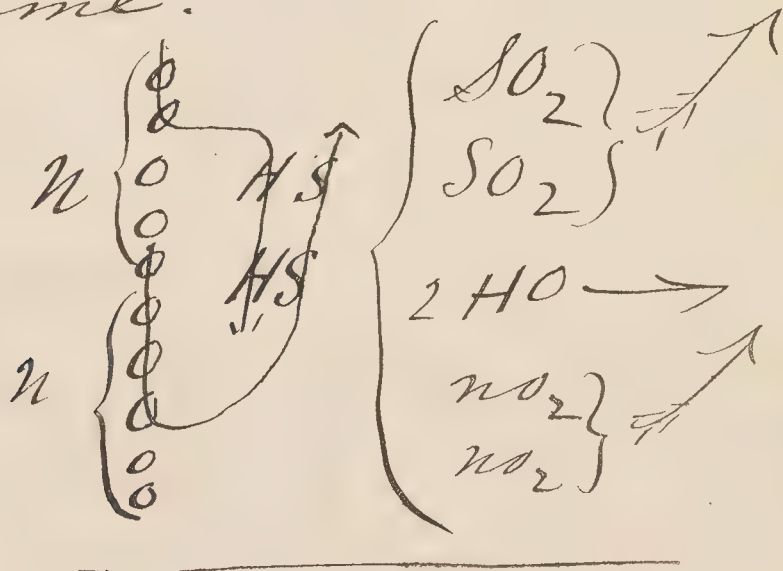 me.
N O
O
O HS
O
O HS
N O
O
O
O
O
SO2
SO2
2 HO
NO2
NO2